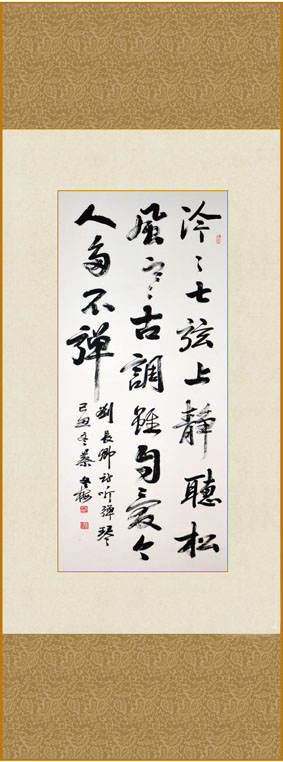 泠〻七弦上靜聽松
風寒古調雖自愛今
人多不彈
劉長卿詩听彈琴
己丑冬蔡梅